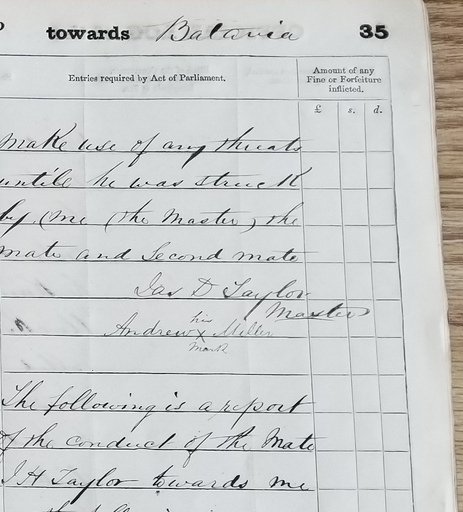 towards Batavia 35
Entries required by Act of Parliament.
Amount of any
Fine or Forfeiture
inflicted.
£ s. d.
make use of any threats
untile he was struck
by (me (the Master) the
mate and Second mate
Jas D Taylor
Master
his
Andrew x Miller
mark
The following is a report
of the conduct of the Mate
J H Taylor towards me